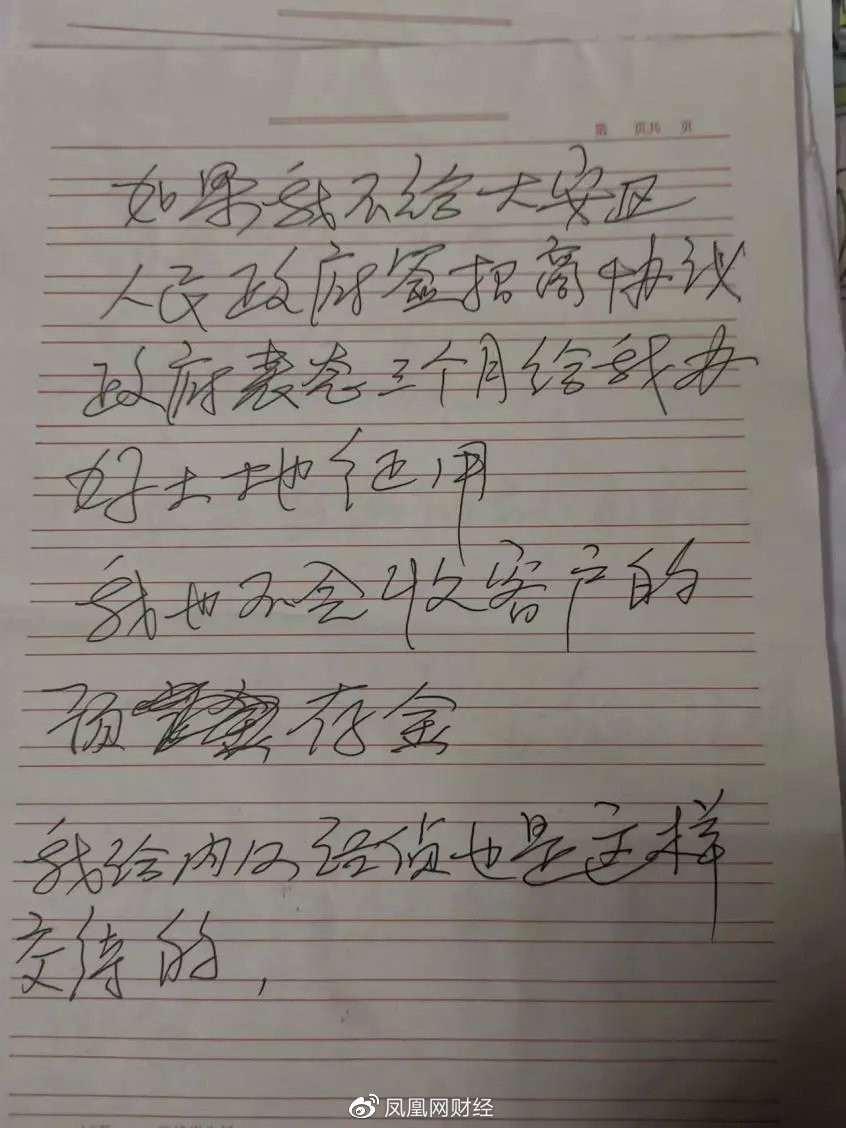 第 页共 页
如果我不给大安区
人民政府签招商协议
政府表态三个月给我办
好土地征用
我也不会收客户的
预存金
我给内江经侦也是这样
交待的，
凤凰网财经